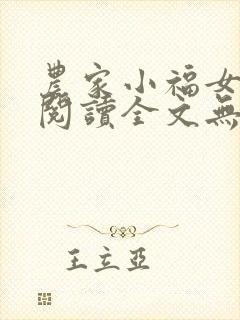 農家小福女
閱讀全文無
王立亞